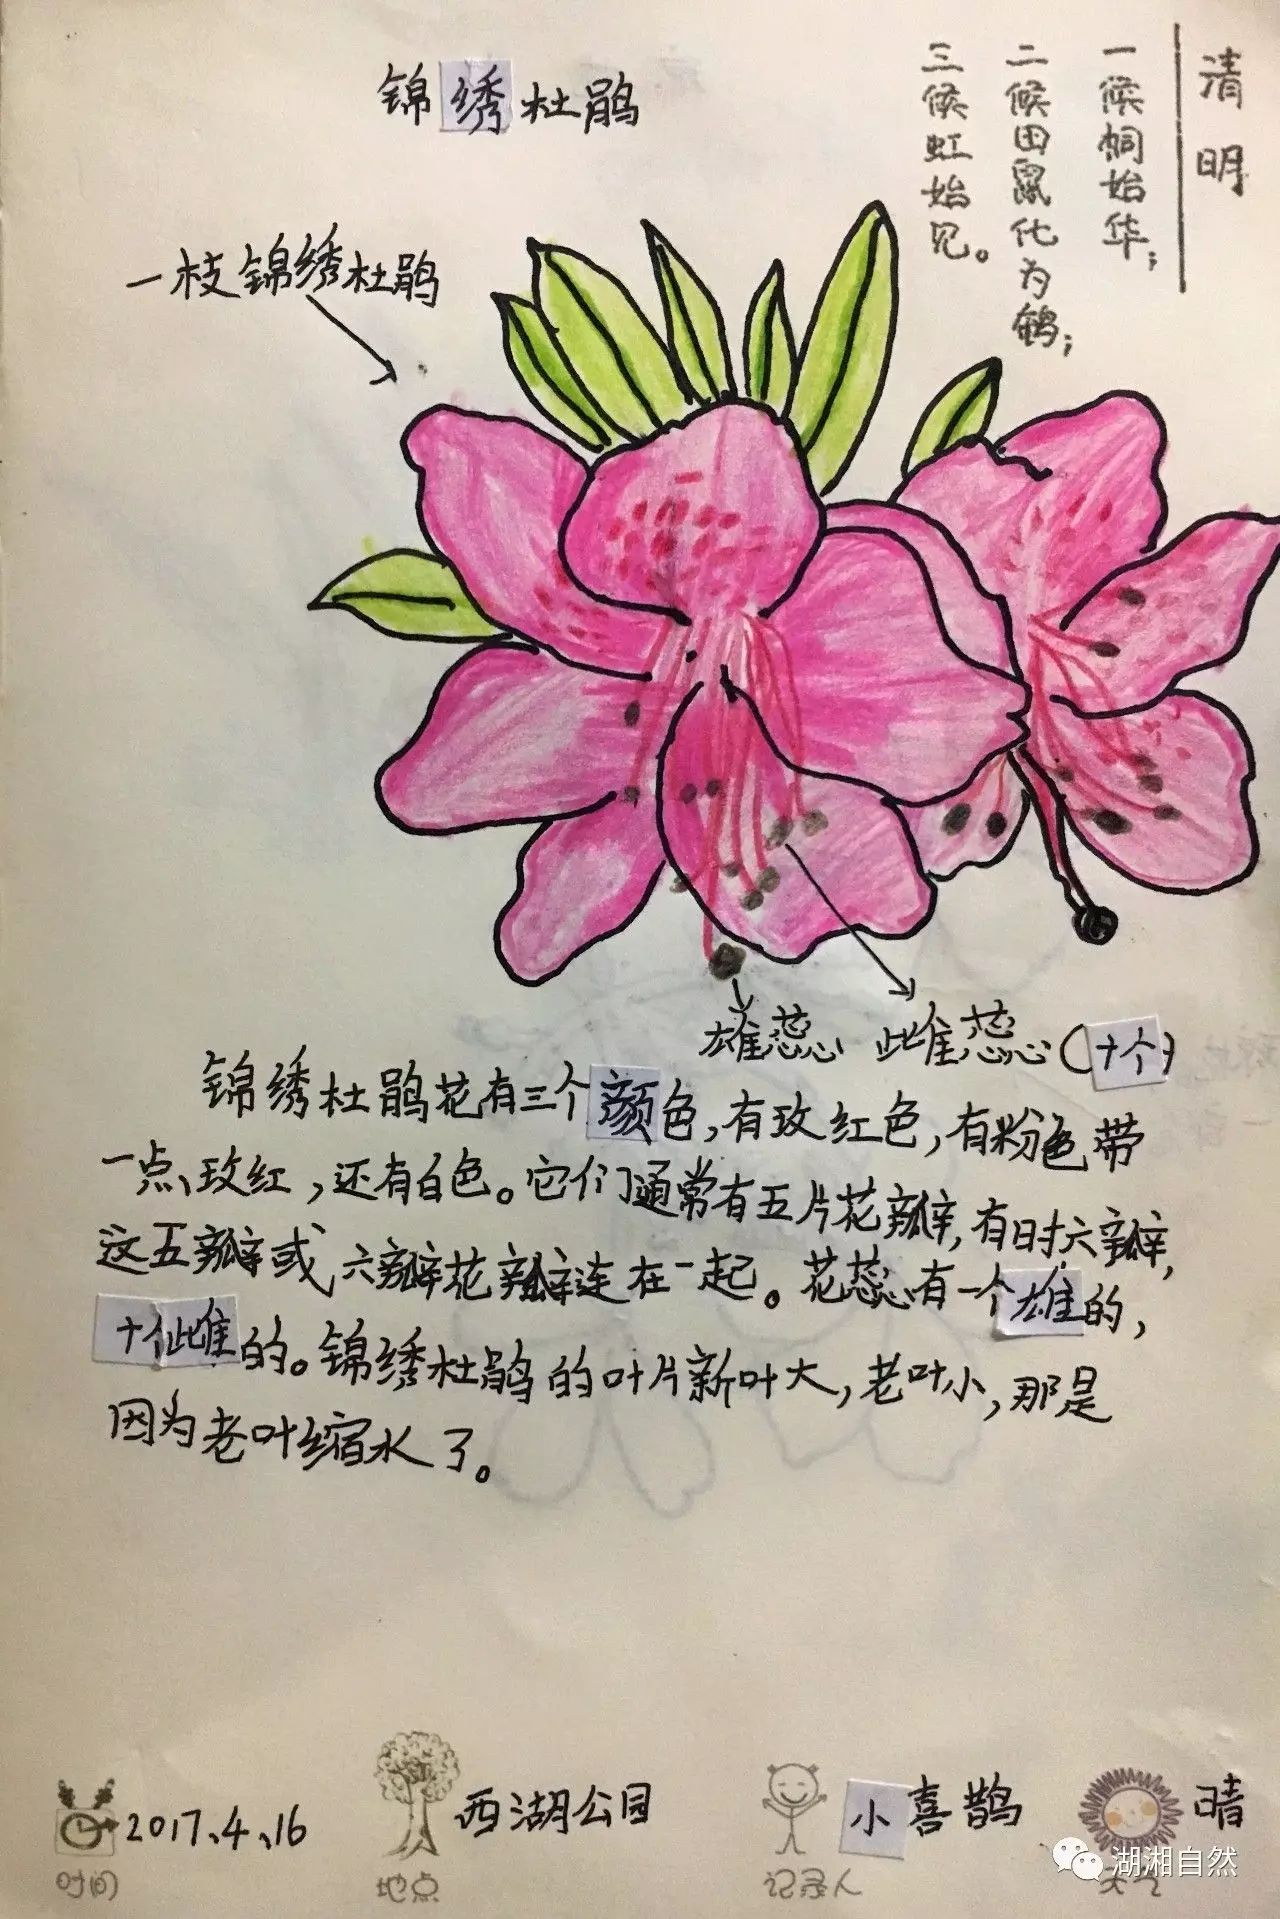 锦绣杜鹃
清明
一候桐始华；
二候田鼠化为鹌；
三候虹始见。
一枝锦绣杜鹃
雄蕊 雌蕊（十个）
锦绣杜鹃花有三个颜色，有玫红色，有粉色带
一点玫红，还有白色。它们通常有五片花瓣，有时六瓣，
这五瓣或六瓣花瓣连在一起。花蕊有一个雄的，
十个雌的。锦绣杜鹃的叶片新叶大，老叶小，那是
因为老叶缩水了。
2017、4、16 西湖公园 小喜鹊 晴
时间 地点 记录人 天气
湖湘自然